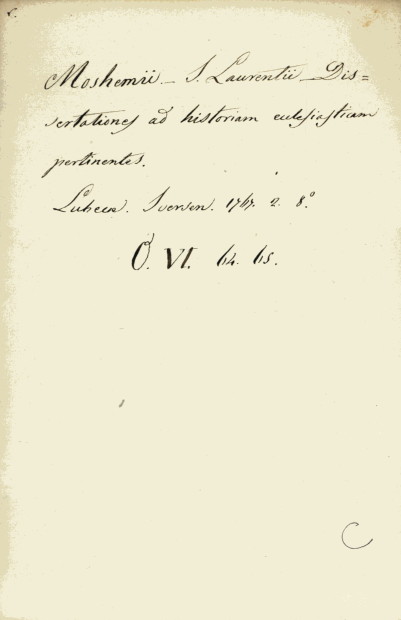 Moshemii – J. Laurentii – Dis=
sertationes ad historiam eclesiasticam
pertinentes.
Lubecæ. Iversen. 1767. 2. 8.°
O. VI. 64. 65.
C